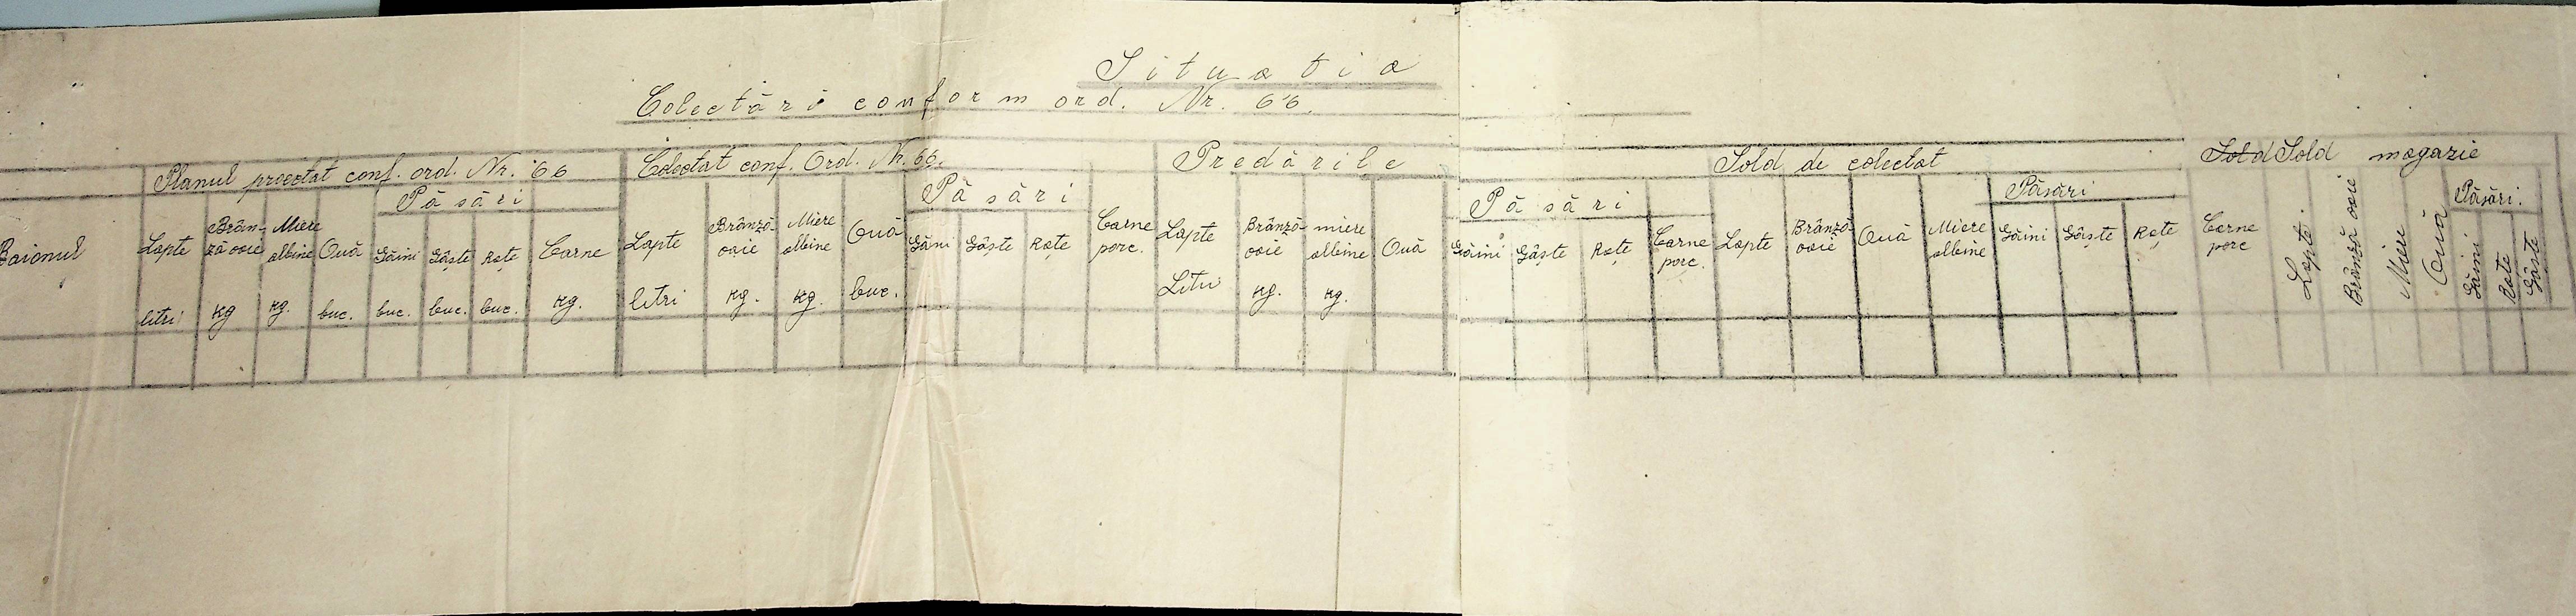 Situatia
Colectări conform ord. Nr. 66.
Planul proectat conf. ord. Nr. 66 Colectat conf. Ord. Nr. 66. Predările Sold de colectat Sold Sold magazie
Păsări Păsări Păsări Păsări Păsări.
Raionul Lapte Brân- Miere Ouă Găini Gâște Rațe Carne Lapte Brânză Miere Ouă Găini Gâște Rațe Carne Lapte Brânză miere Ouă Găini Gâște Rațe Carne Lapte Brânză Ouă Miere Găini Gâște Rațe Carne Lapte. Brânză oaie Miere Ouă Găini Rațe Gâște
ză oaie albine oaie albine porc. oaie albine porc. oaie albine porc
litri kg kg. buc. buc. buc. buc. kg. litri kg. kg. buc. Litri kg. kg.